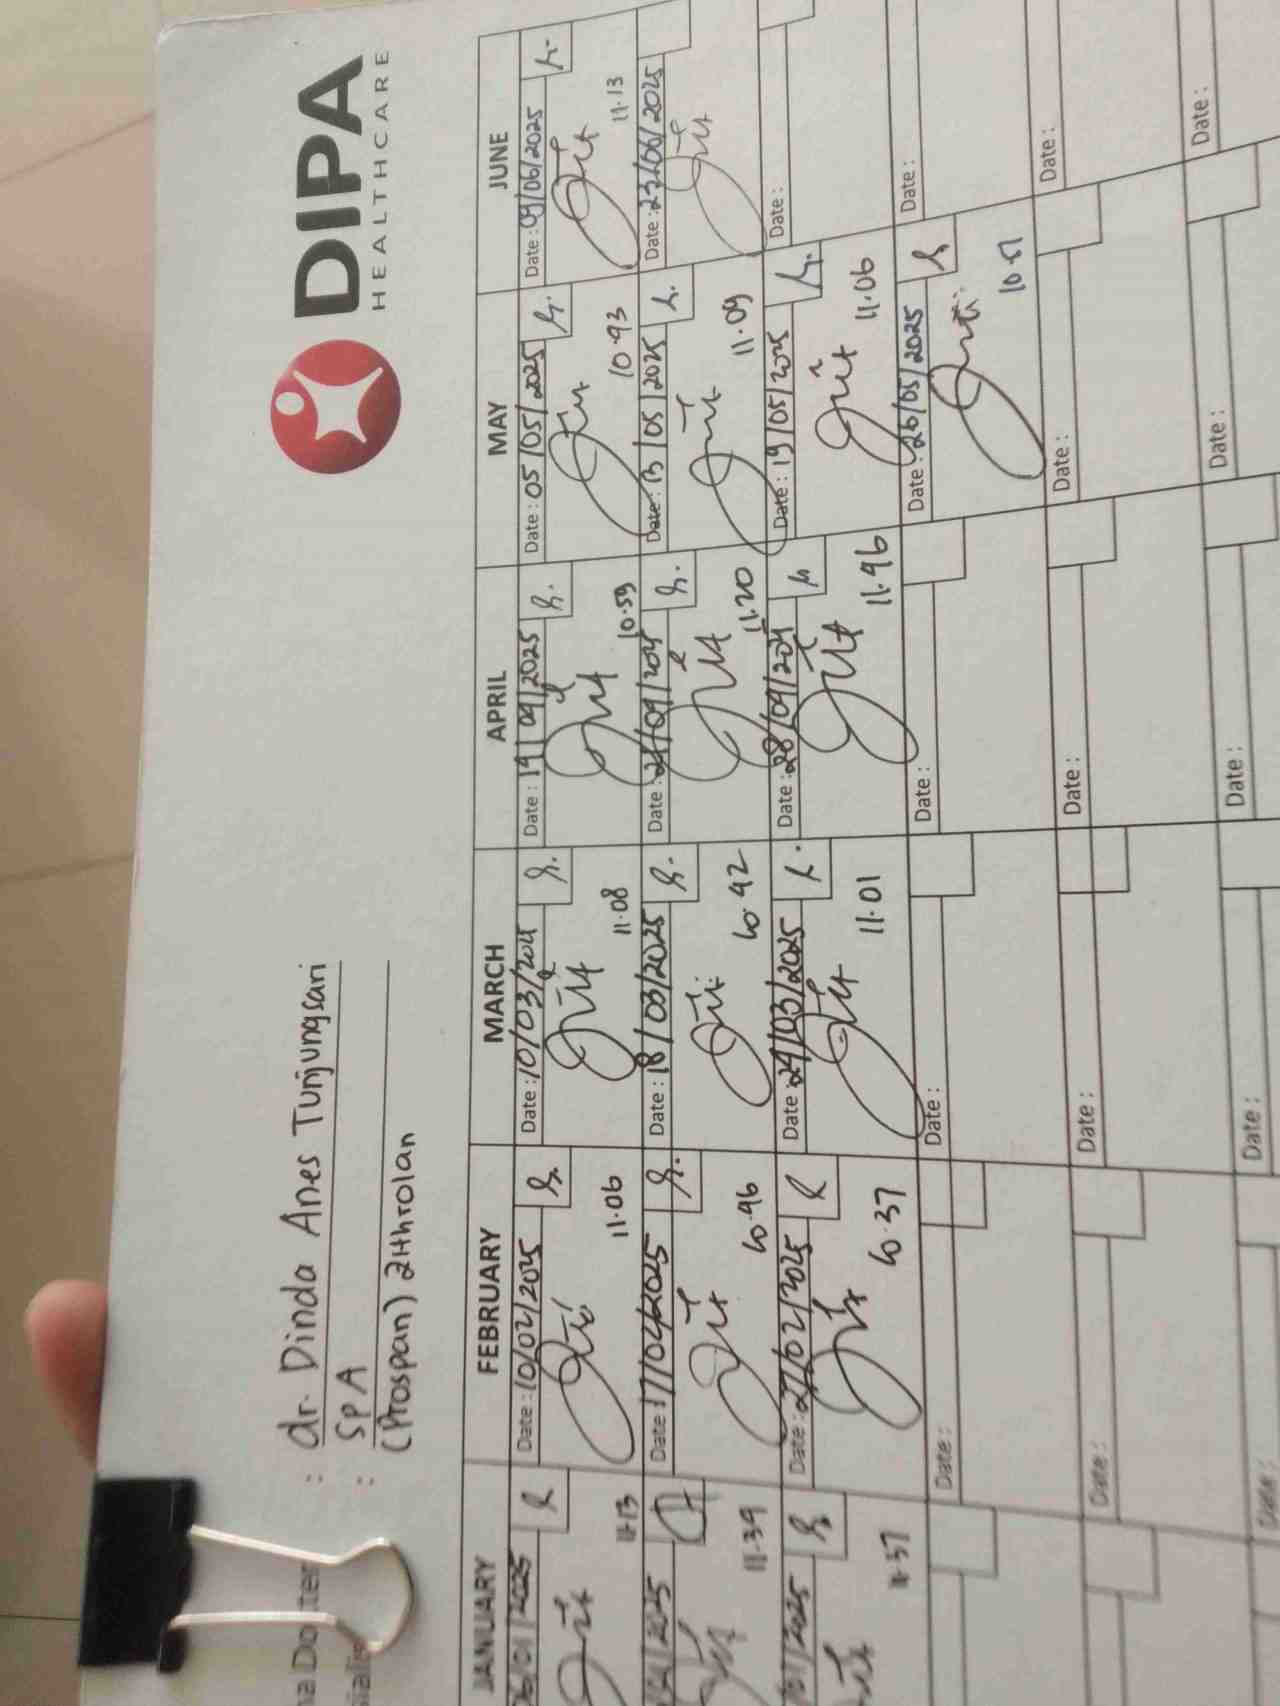 DIPA
HEALTHCARE
: dr. Dinda Anes Tunjungsari
: SpA
(Prospan) 2Hthrolan
JANUARY FEBRUARY MARCH APRIL MAY JUNE
06/01/2025 Date : 10/02/2025 Date : 10/03/2025 Date : 14/04/2025 Date : 05/05/2025 Date : 09/06/2025
11.13 11.06 11.08 10.59 10.43 11.13
Date : 17/02/2025 Date : 18/03/2025 Date : 21/04/2025 Date : 13/05/2025 Date : 23/06/2025
11.39 10.46 10.42 11.20 11.09
Date : 27/02/2025 Date : 24/03/2025 Date : 28/04/2025 Date : 19/05/2025 Date :
11.37 10.37 11.01 11.46 11.06
Date : Date : Date : Date : 26/05/2025 Date :
10.51
Date : Date : Date : Date : Date :
Date : Date : Date : Date : Date :